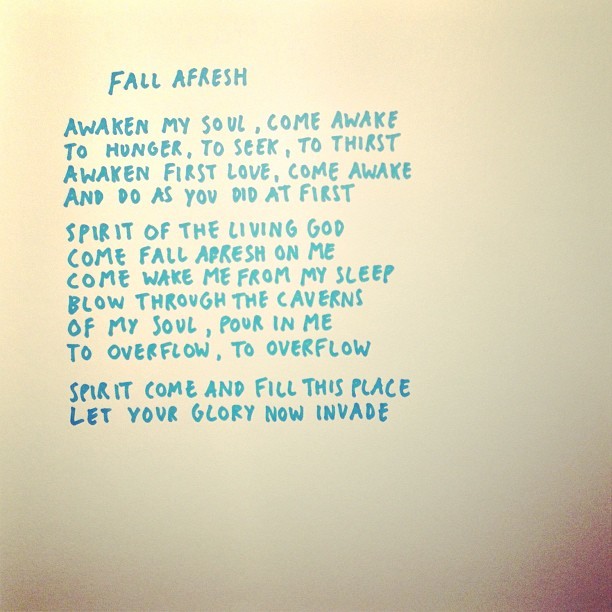 FALL AFRESH
AWAKEN MY SOUL, COME AWAKE
TO HUNGER, TO SEEK, TO THIRST
AWAKEN FIRST LOVE, COME AWAKE
AND DO AS YOU DID AT FIRST
SPIRIT OF THE LIVING GOD
COME FALL AFRESH ON ME
COME WAKE ME FROM MY SLEEP
BLOW THROUGH THE CAVERNS
OF MY SOUL, POUR IN ME
TO OVERFLOW, TO OVERFLOW
SPIRIT COME AND FILL THIS PLACE
LET YOUR GLORY NOW INVADE